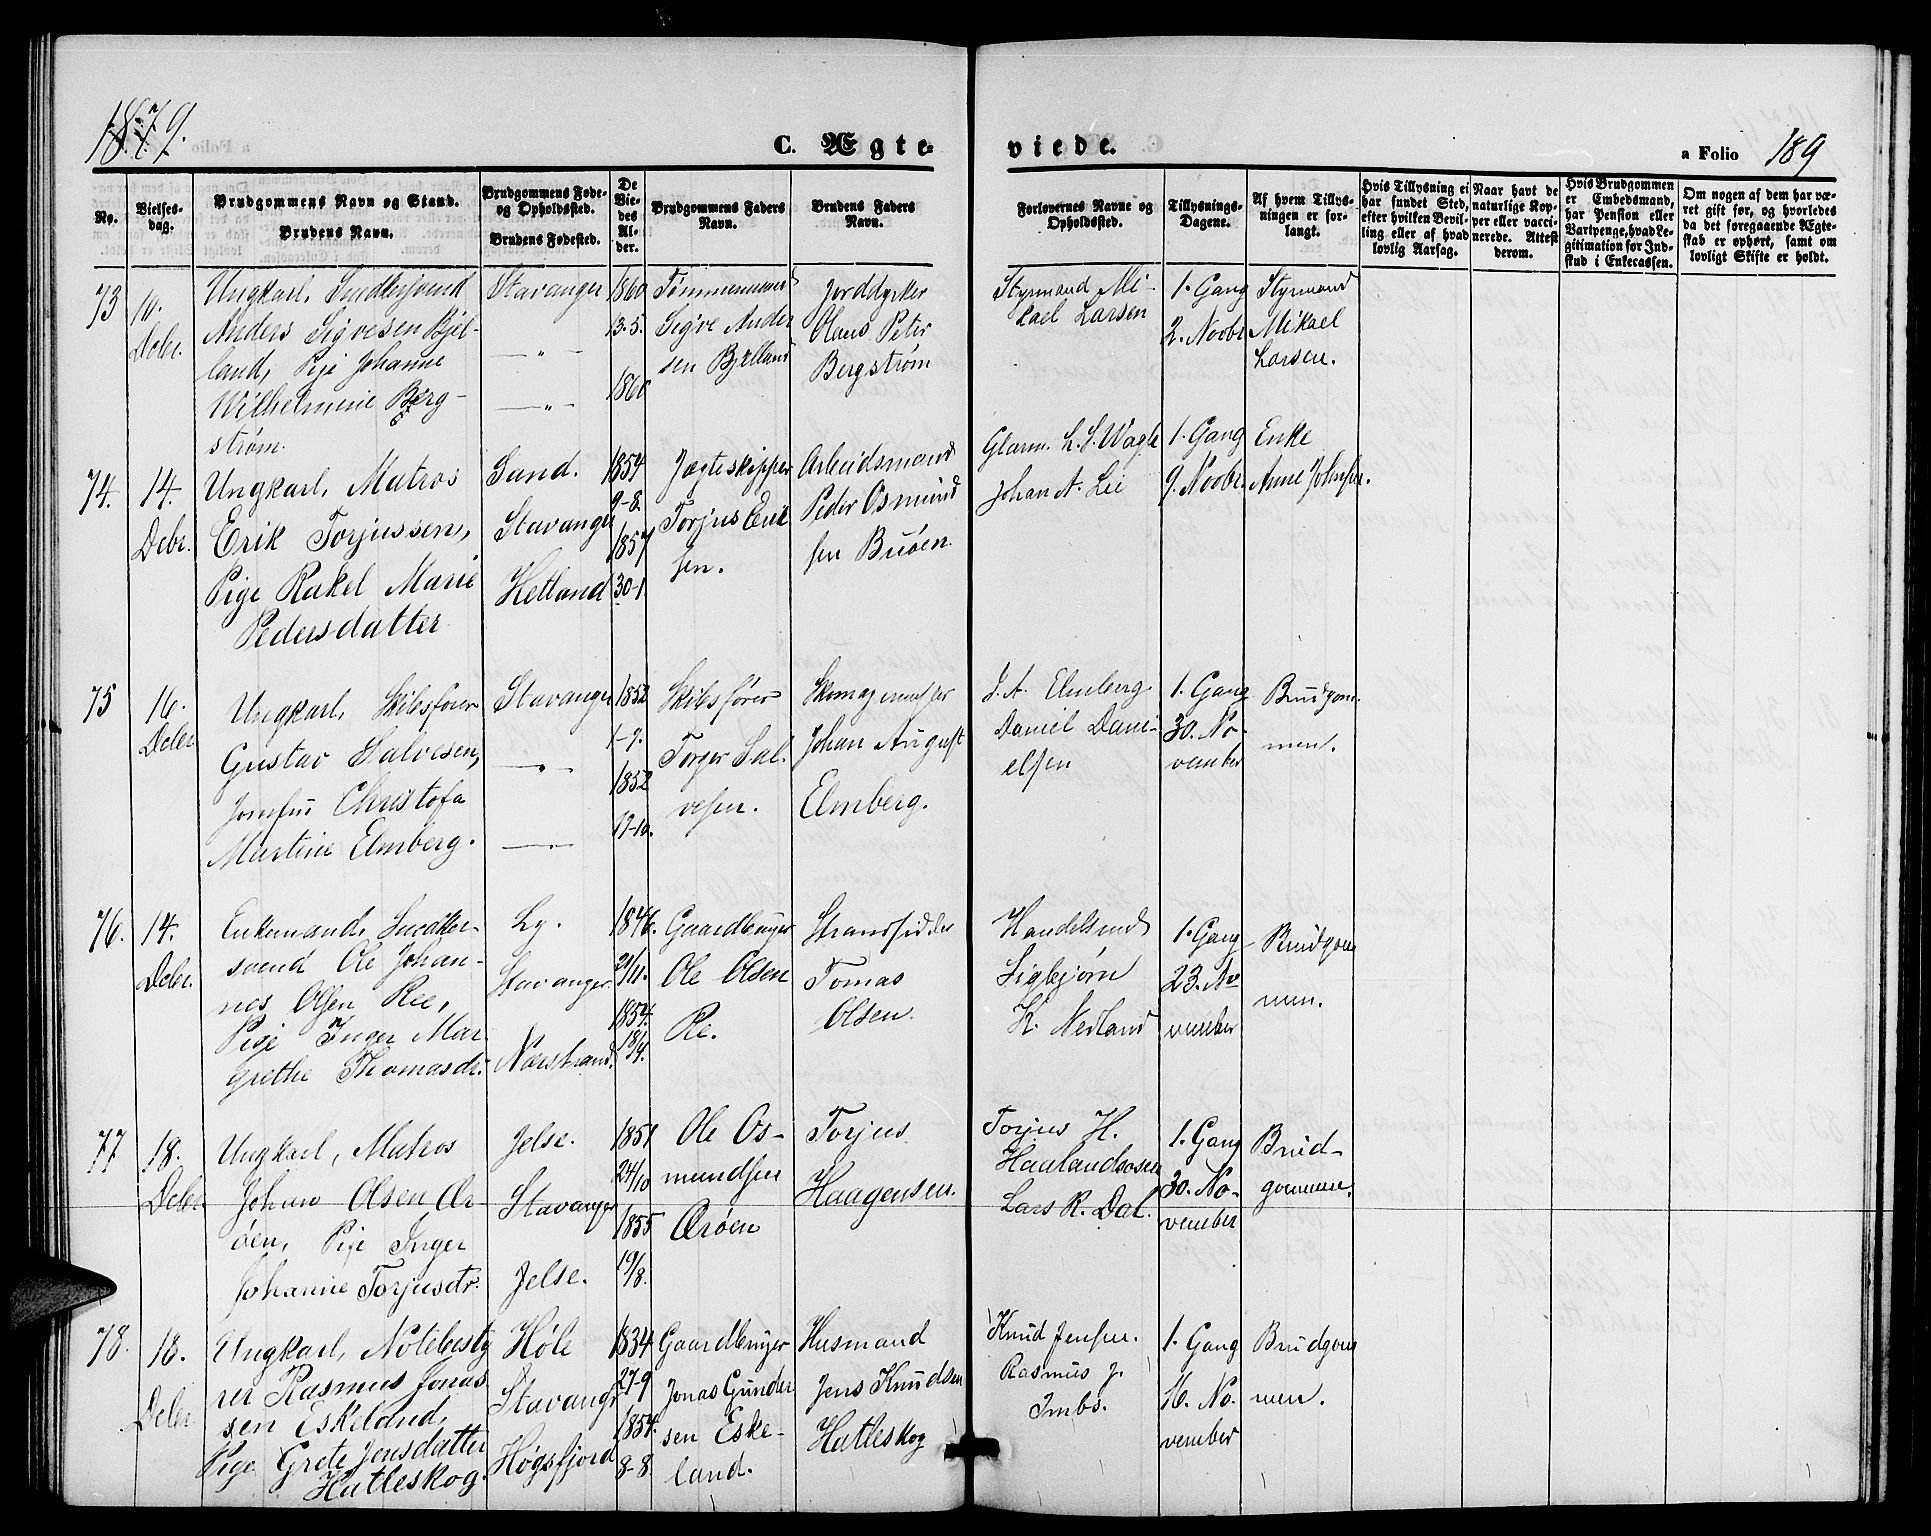 1879.
C. Ægteviede.
a Folio 189
No.
Vielsesdag.
Brudgommens Navn og Stand.
Brudens Navn.
Brudgommens Føde- og Opholdssted.
Brudens Fødested.
De Viedes Alder.
Brudgommens Faders Navn.
Brudens Faders Navn.
Forlovernes Navne og Opholdssted.
Tillysnings-Dagene.
Af hvem Tillysningen er forlangt.
Hvis Tillysning ei har fundet Sted, efter hvilken Bevilling eller af hvad lovlig Aarsag.
Naar havt de naturlige Kopper eller vaccinerede. Attest derom.
Hvis Brudgommen er Embedsmand, har Pension eller Vartpenge, hvad Legitimation for Indskud i Enkecassen.
Om nogen af dem har været gift før, og hvorledes da det foregaaende Ægteskab er ophørt, samt om lovligt Skifte er holdt.
73
10.
Decbr.
Ungkarl, Snedkersvend
Anders Sigvesen Bjel-
land, Pige Johanne
Wilhelmine Berg-
strøm.
Stavanger
— " —
— " —
1860
13-5
1860
Tømmermand
Sigve Ander
sen Bjelland
Jorddyrker
Olaus Peter
Bergstrøm
Styrmand Mi-
kael Larsen
1. Gang
2. Novbr
Styrmand
Mikael
Larsen.
74.
14.
Debr.
Ungkarl, Matros
Erik Torjussen,
Pige Rakel Marie
Pedersdatter
Sand.
Stavanger
Hetland
1854
9-8.
1857
30-1
Jægteskipper
Torjus Erik
sen.
Arbeidsmand
Peder Osmund
sen Buøen
Glarm. L. S. Wagle
Johan A. Lie
1. Gang
9. Novbr.
Enke
Anne Johnsen.
75
16.
Debr
Ungkarl, Skibsfører
Gustav Salvesen,
Jomfru Christofa
Martine Elmberg.
Stavanger
— " —
— " —
1852
1-9.
1852
17-10.
Skibsfører
Torger Sal-
vesen.
Skomagermester
Johan August
Elmberg.
J. A. Elmberg
Daniel Dani-
elsen
1. Gang
30. No-
vember
Brudgom-
men.
76.
14.
Debr.
Enkemand, Snedker-
svend Ole Johan-
nes Olsen Ree,
Pige Inger Mar
grethe Thomasdr.
Ly.
Stavanger
Nærstrand.
1846.
21/11.
1854.
18/4.
Gaardbruger
Ole Olsen
Re.
Strandsidder
Tomas
Olsen.
Handelsmd
Sigbjørn
K. Nedland
1. Gang
23. No
vember
Brudgom
men.
77
18.
Debr
Ungkarl, Matros
Johan Olsen Ær-
øen, Pige Inger
Johanne Torjusdr.
Jelse.
Stavanger
Jelse.
1851
24/10
1855
19/8.
Ole Os-
mundsen
Ærøen
Torjus
Haagensen.
Torjus H.
Haalandsosen
Lars R. Dal.
1. Gang
30. No-
vember
Brud-
gommen.
78.
18.
Debr
Ungkarl, Notebesty
rer Rasmus Jonas
sen Eskeland,
Pige Grete Jensdatter
Hatleskog.
Høle
Stavangr
Høgsfjord
1834
27-9
1854.
8-8
Gaardbruger
Jonas Gunder
sen Eske-
land.
Husmand
Jens Knudsen
Hatleskog
Knud Jensen.
Rasmus J.
Imbs.
1. Gang
16. No-
vember
Brudgom
men.